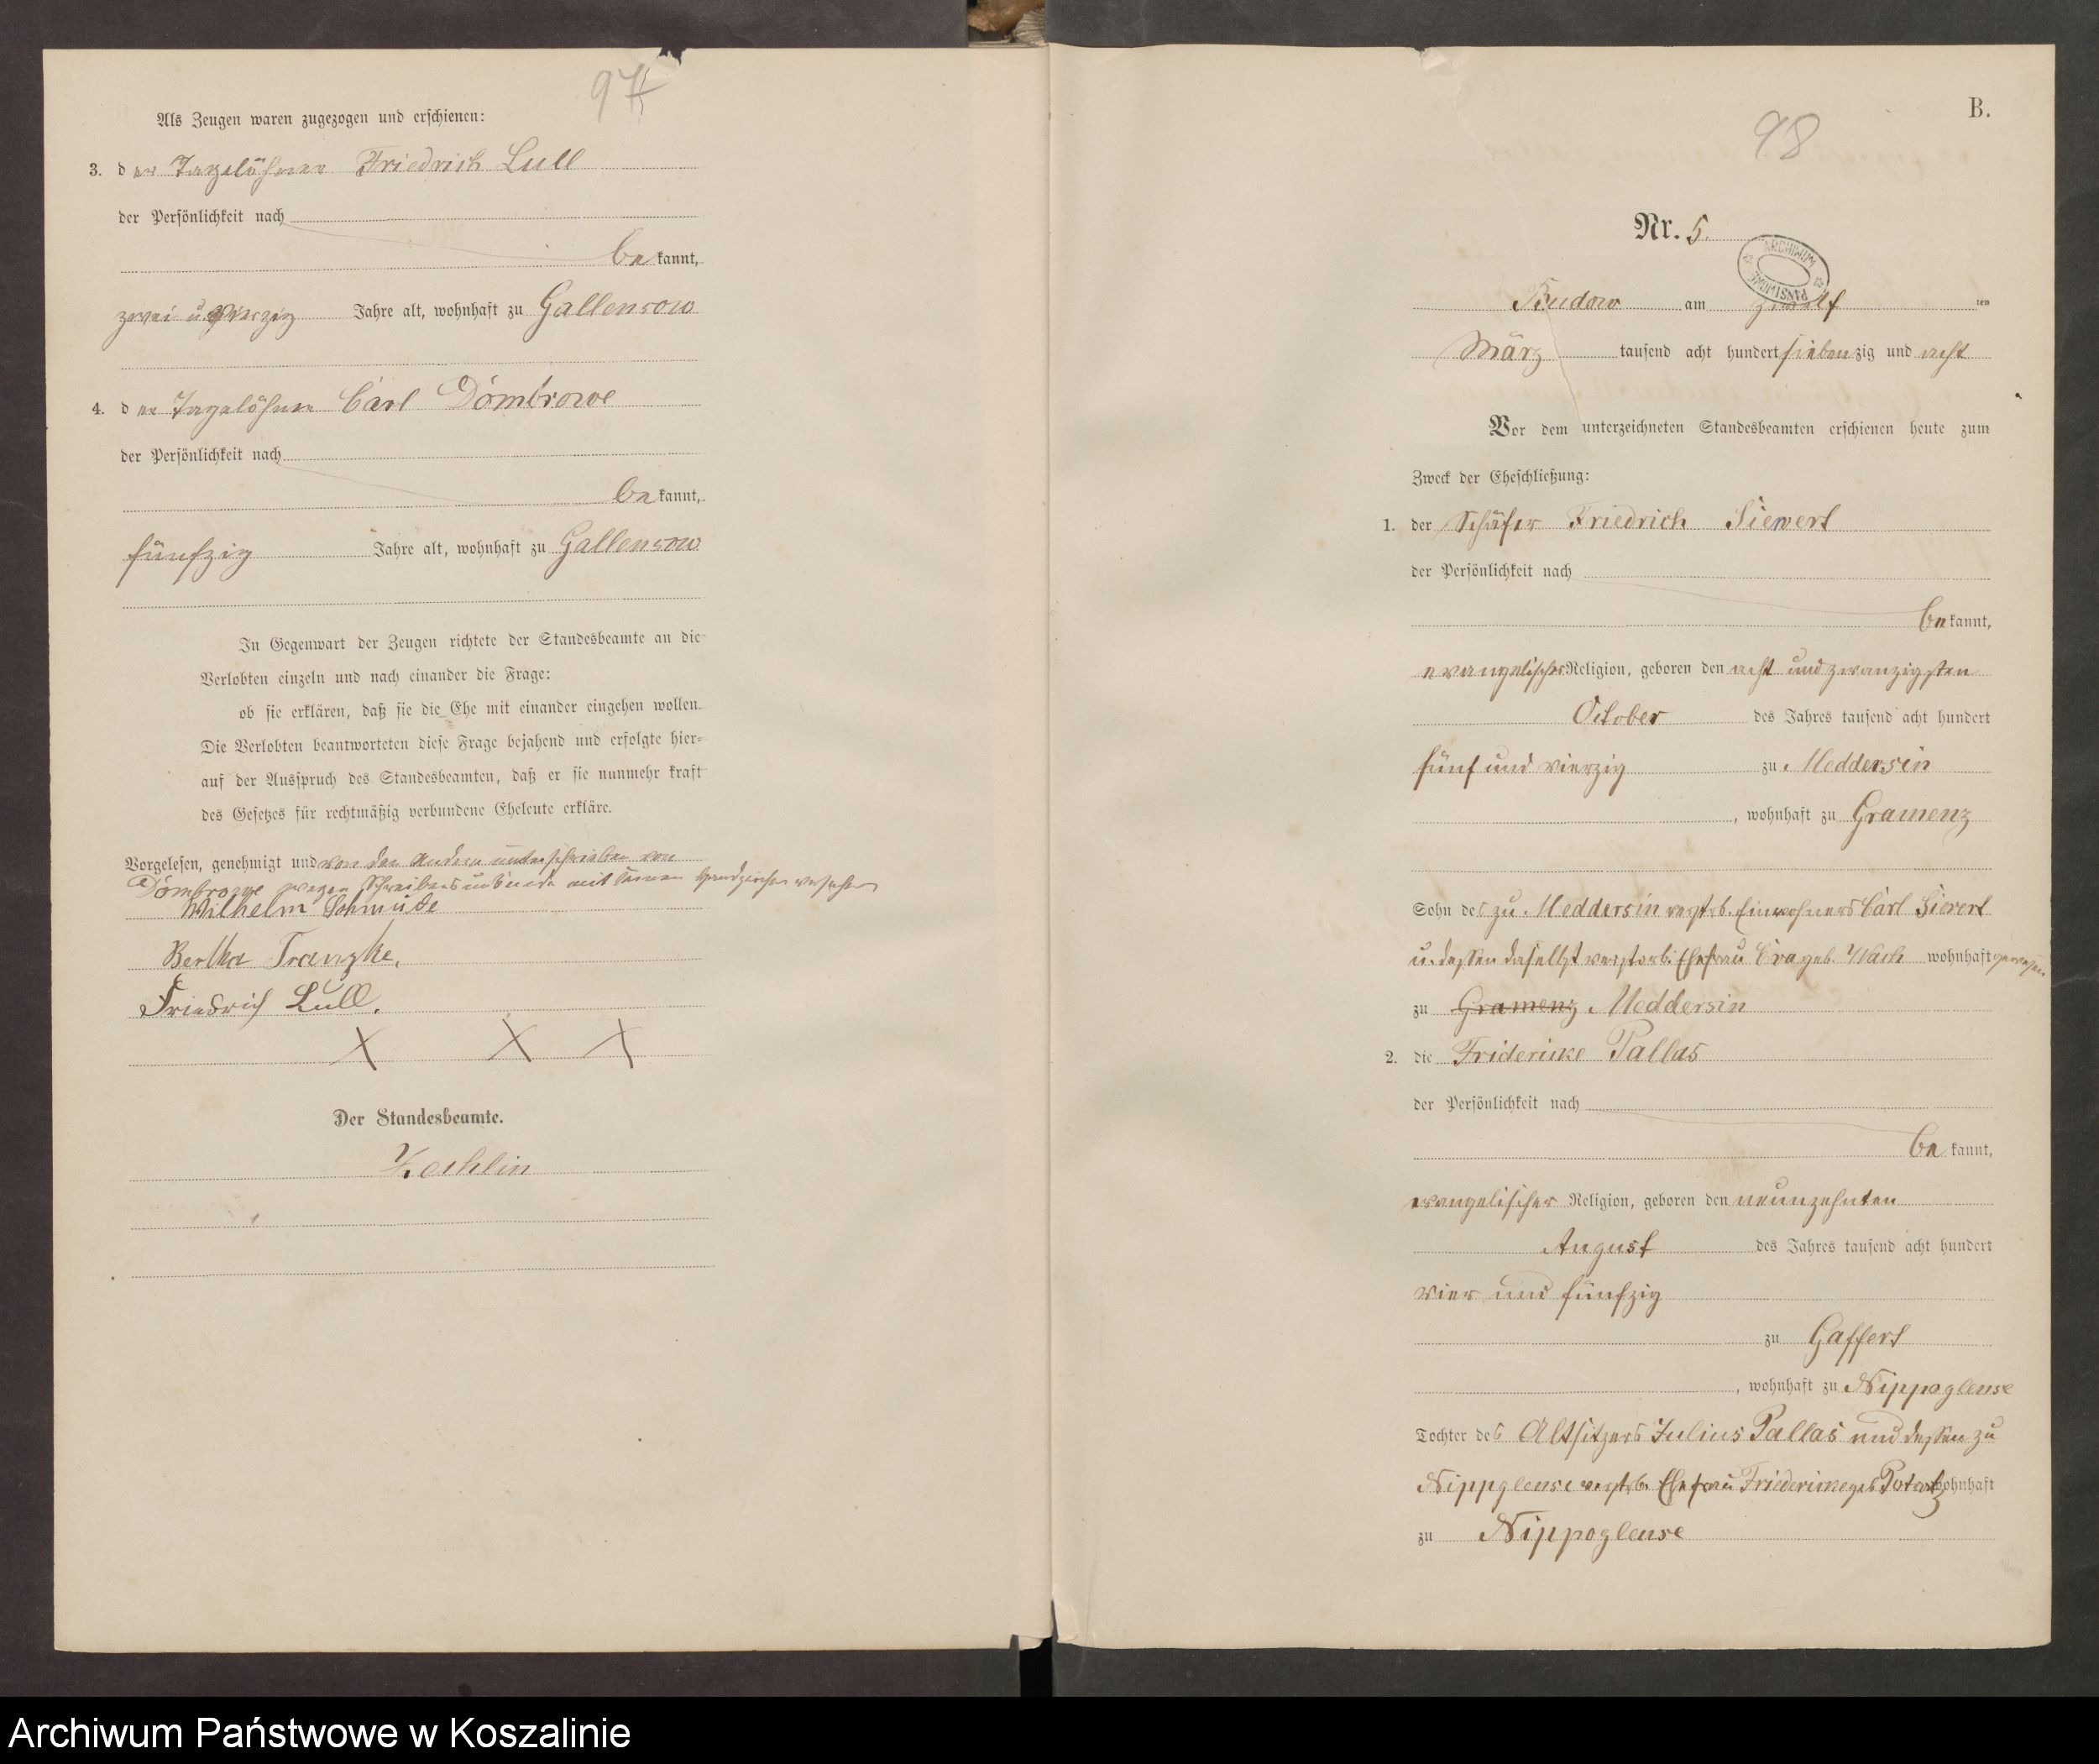 97
Als Zeugen waren zugezogen und erschienen:
3. der Tagelöhner Friedrich Lull
der Persönlichkeit nach
bekannt,
zwei u. vierzig Jahre alt, wohnhaft zu Gallensow
4. der Tagelöhner Carl Dombrowe
der Persönlichkeit nach
bekannt,
fünfzig Jahre alt, wohnhaft zu Gallensow
In Gegenwart der Zeugen richtete der Standesbeamte an die
Verlobten einzeln und nach einander die Frage:
ob sie erklären, daß sie die Ehe mit einander eingehen wollen.
Die Verlobten beantworteten diese Frage bejahend und erfolgte hier-
auf der Ausspruch des Standesbeamten, daß er sie nunmehr kraft
des Gesetzes für rechtmäßig verbundene Eheleute erkläre.
Vorgelesen, genehmigt und von den Andern unterschrieben von
Dombrowe wegen Schreibensunkunde mit seinem Handzeichen versehen
Wilhelm Schmude
Bertha Franzke.
Friedrich Lull.
X X X
Der Standesbeamte.
Zechlin
98
B.
Nr. 5.
ARCHIWUM PAŃSTWOWE
Budow am zwölf ten
März tausend acht hundert siebenzig und acht
Vor dem unterzeichneten Standesbeamten erschienen heute zum
Zweck der Eheschließung:
1. der Schäfer Friedrich Siewert
der Persönlichkeit nach
bekannt,
evangelischer Religion, geboren den acht und zwanzigsten
October des Jahres tausend acht hundert
fünf und vierzig zu Meddersin
, wohnhaft zu Gramenz
Sohn des zu Meddersin verstrb. Einwohners Carl Sievert
u. dessen daselbst verstorb. Ehefrau Eva geb. Wach wohnhaft gewesen
zu Gramenz Meddersin
2. die Fridericke Pallas
der Persönlichkeit nach
bekannt,
evangelischer Religion, geboren den neunzehnten
August des Jahres tausend acht hundert
vier und fünfzig
zu Gaffert
, wohnhaft zu Nippoglense
Tochter des Altsitzers Julius Pallas und dessen zu
Nippglense verstrb. Ehefrau Friedericke geb. wohnhaft
zu Nippoglense
Archiwum Państwowe w Koszalinie